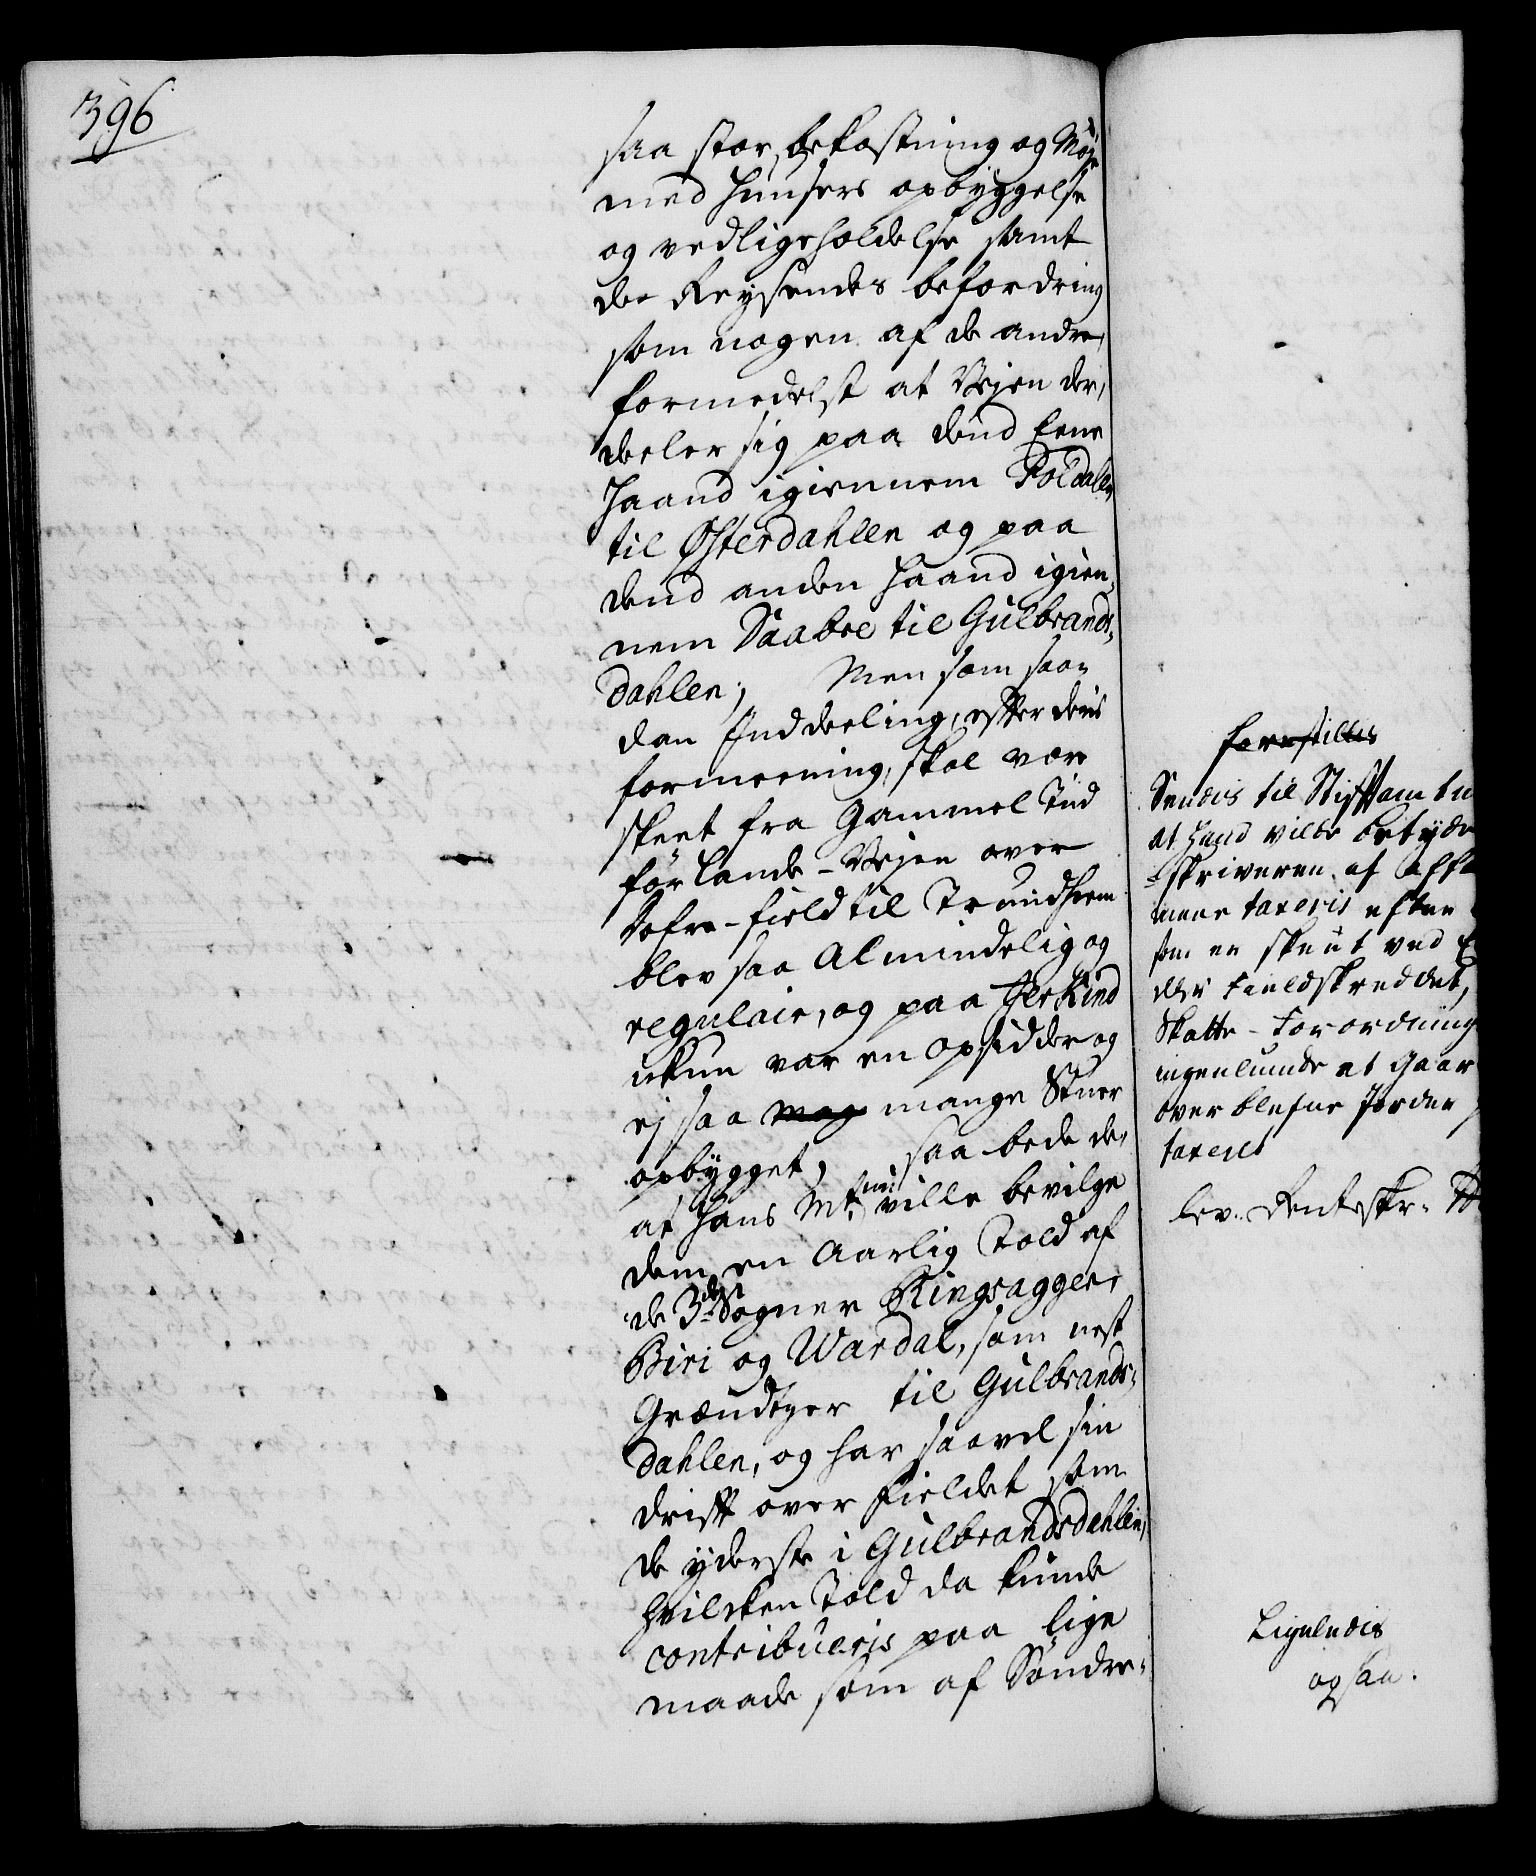 396
saa stor bekostning og Møje
med Huusers opbyggelse
og vedligeholdelse samt
de Reysendes befordring
som nogen af de andre,
formedelst at Vejen der,
deeler sig paa dend Eene
Haand igiennem Foldalen
til Østerdahlen og paa
dend anden Haand igien-
nem Laabee til Gulbrands-
dahlen; Men som saa-
dan Inddeeling, efter deris
formeening, skal være
skeet fra Gammel Tiid
før Lande-Vejen over
Dofre-field til Trundhiem
blev saa Almindelig og
regulair, og paa Jerkind
ikun var en opsidder og
ej saa mag mange Stuer
opbygget; saa bede de,
at Hans Mt. nu ville bevilge
dem en Aarlig Told af
de 3de Sogner Ringsagger,
Biri og Wardal, som nest
Grændtzer til Gulbrands-
dahlen, og har saavel sin
drift over Fieldet som
de yderste i Gulbrandsdahlen,
hvilcken Told da kunde
contribueris paa lige
maade som af Søndre-
forestilles
Sendis til Stiftamtm
at Hand vilde betyde
-skriveren, at Afft
mene taxeris efter
som er skeut ved E
eller Fieldskreddet,
Skatte-Forordning
ingenlunde at Gaar
over blefne Jorder
taxeret
lev. Renteskr.
Ligeledis
ogsaa.